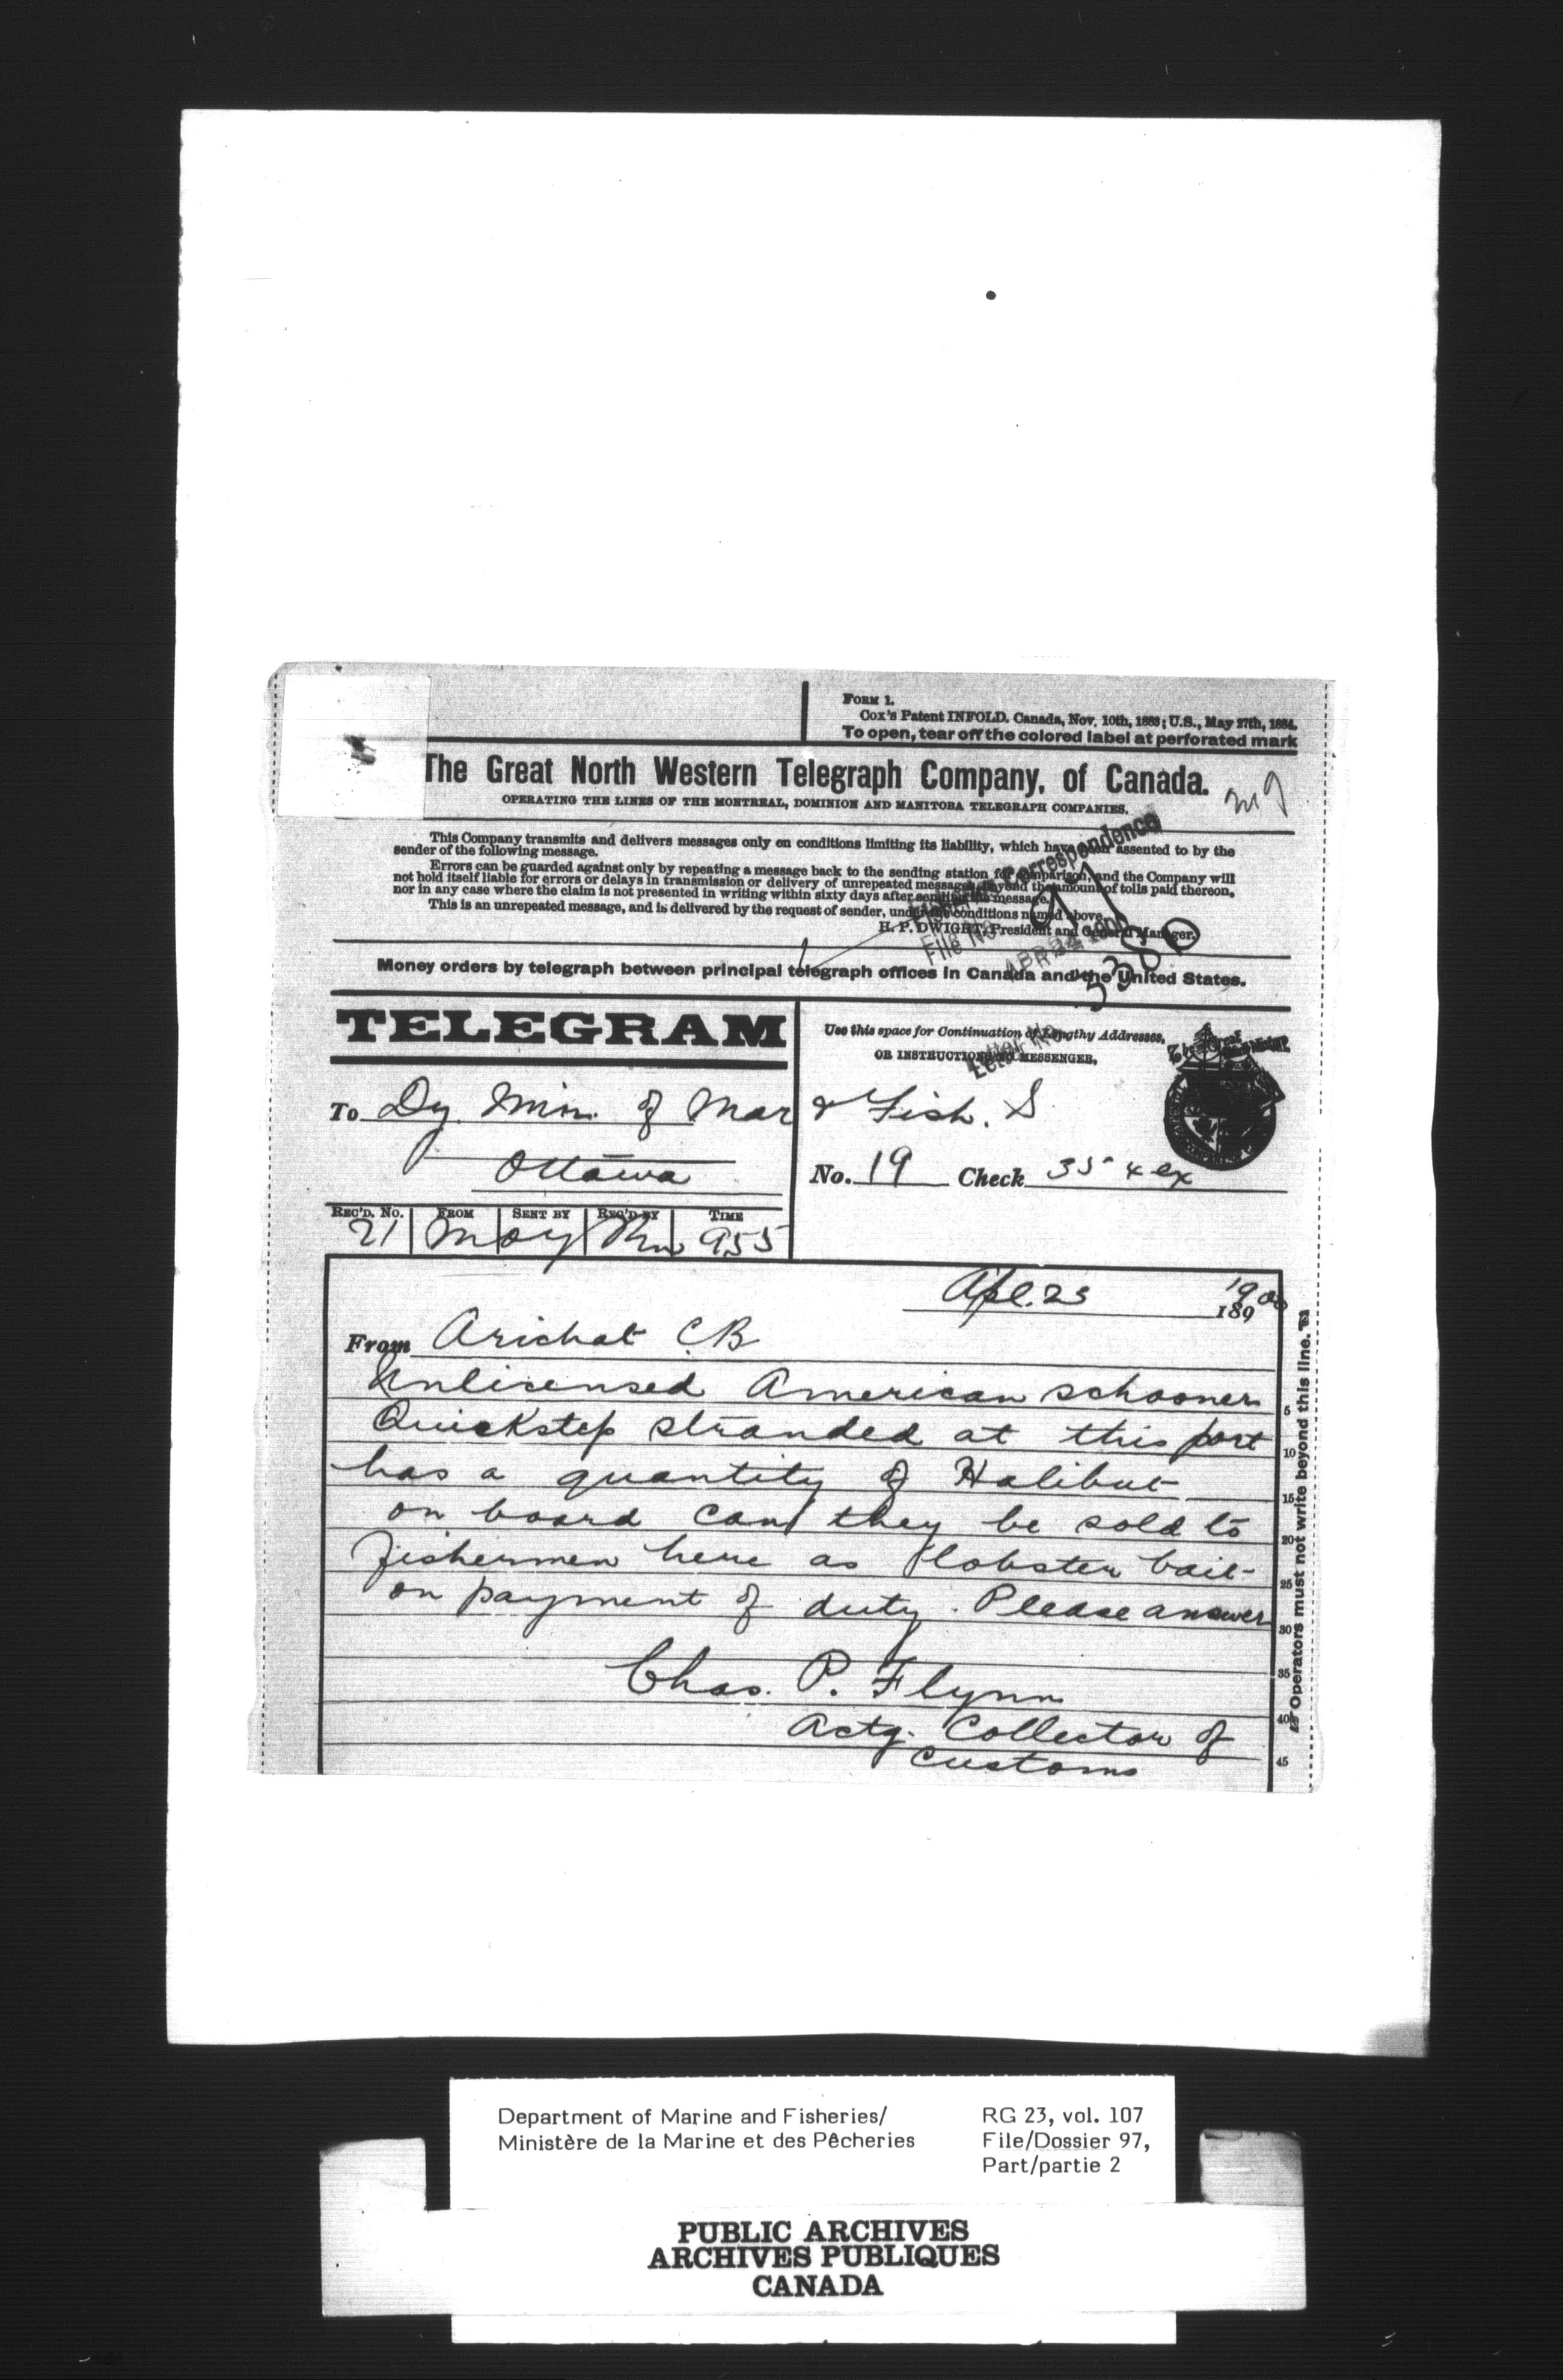 FORM 1.
Cox's Patent INFOLD. Canada, Nov. 10th, 1883; U.S., May 27th, 1884.
To open, tear off the colored label at perforated mark
The Great North Western Telegraph Company, of Canada.
OPERATING THE LINES OF THE MONTREAL, DOMINION AND MANITOBA TELEGRAPH COMPANIES.
This Company transmits and delivers messages only on conditions limiting its liability, which have been assented to by the
sender of the following message.
Errors can be guarded against only by repeating a message back to the sending station for comparison, and the Company will
not hold itself liable for errors or delays in transmission or delivery of unrepeated messages, beyond the amount of tolls paid thereon,
nor in any case where the claim is not presented in writing within sixty days after sending the message.
This is an unrepeated message, and is delivered by the request of sender, under the conditions named above.
H. P. DWIGHT, President and General Manager.
Correspondence
File No.
97
APR 24 1900
Money orders by telegraph between principal telegraph offices in Canada and the United States.
TELEGRAM
Use this space for Continuation of Lengthy Addresses,
OR INSTRUCTIONS TO MESSENGER.
Letter No.
To Dy Min. of Mar & Fish. S
Ottawa
No. 19 Check 35 4 ex
REC'D. No. FROM SENT BY REC'D BY TIME
21 955
Apl. 23 1900
189
From Arichat CB
Unlisensed American schooner
Quickstep stranded at this port
has a quantity of Halibut
on board can they be sold to
fishermen here as lobster bait
on payment of duty. Please answer
Chas. P. Flynn
Actg. Collector of
Customs
5
10
15
20
25
30
35
40
45
Operators must not write beyond this line.
Department of Marine and Fisheries/
Ministère de la Marine et des Pêcheries
RG 23, vol. 107
File/Dossier 97,
Part/partie 2
PUBLIC ARCHIVES
ARCHIVES PUBLIQUES
CANADA